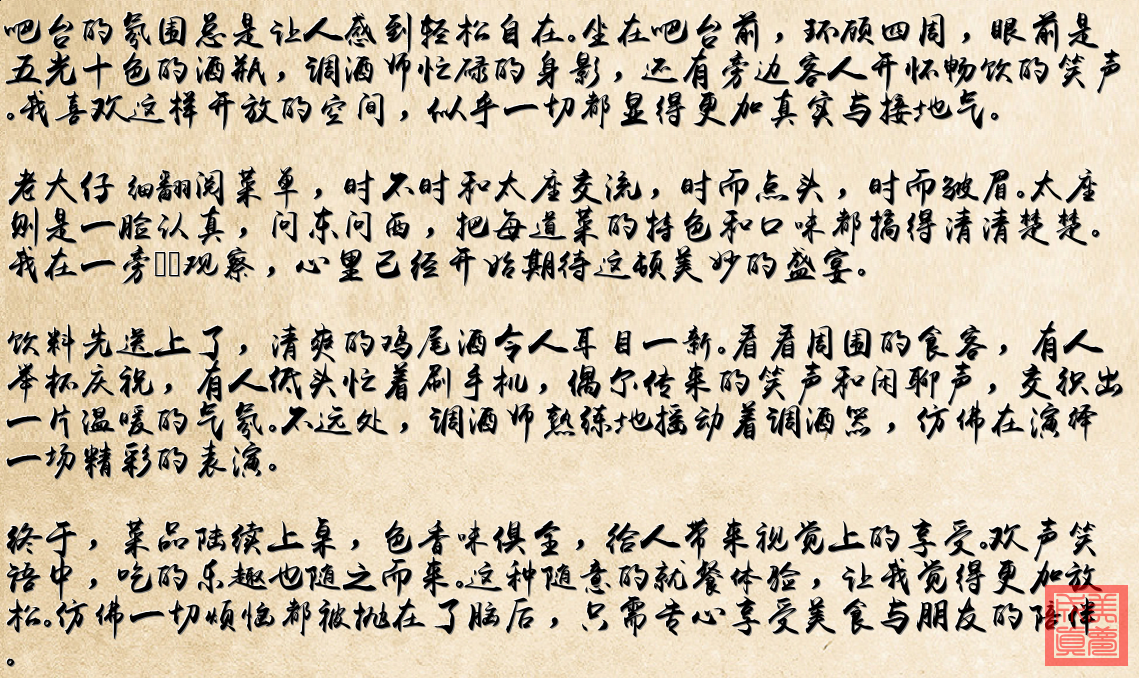 吧台的氛围总是让人感到轻松自在。坐在吧台前，环顾四周，眼前是
五光十色的酒瓶，调酒师忙碌的身影，还有旁边客人开怀畅饮的笑声
。我喜欢这样开放的空间，似乎一切都显得更加真实与接地气。
老大仔细翻阅菜单，时不时和太座交流，时而点头，时而皱眉。太座
则是一脸认真，问东问西，把每道菜的特色和口味都搞得清清楚楚。
我在一旁观察，心里已经开始期待这顿美妙的盛宴。
饮料先送上了，清爽的鸡尾酒令人耳目一新。看看周围的食客，有人
举杯庆祝，有人低头忙着刷手机，偶尔传来的笑声和闲聊声，交织出
一片温暖的气氛。不远处，调酒师熟练地摇动着调酒器，仿佛在演绎
一场精彩的表演。
终于，菜品陆续上桌，色香味俱全，给人带来视觉上的享受。欢声笑
语中，吃的乐趣也随之而来。这种随意的就餐体验，让我觉得更加放
松。仿佛一切烦恼都被抛在了脑后，只需专心享受美食与朋友的陪伴
。